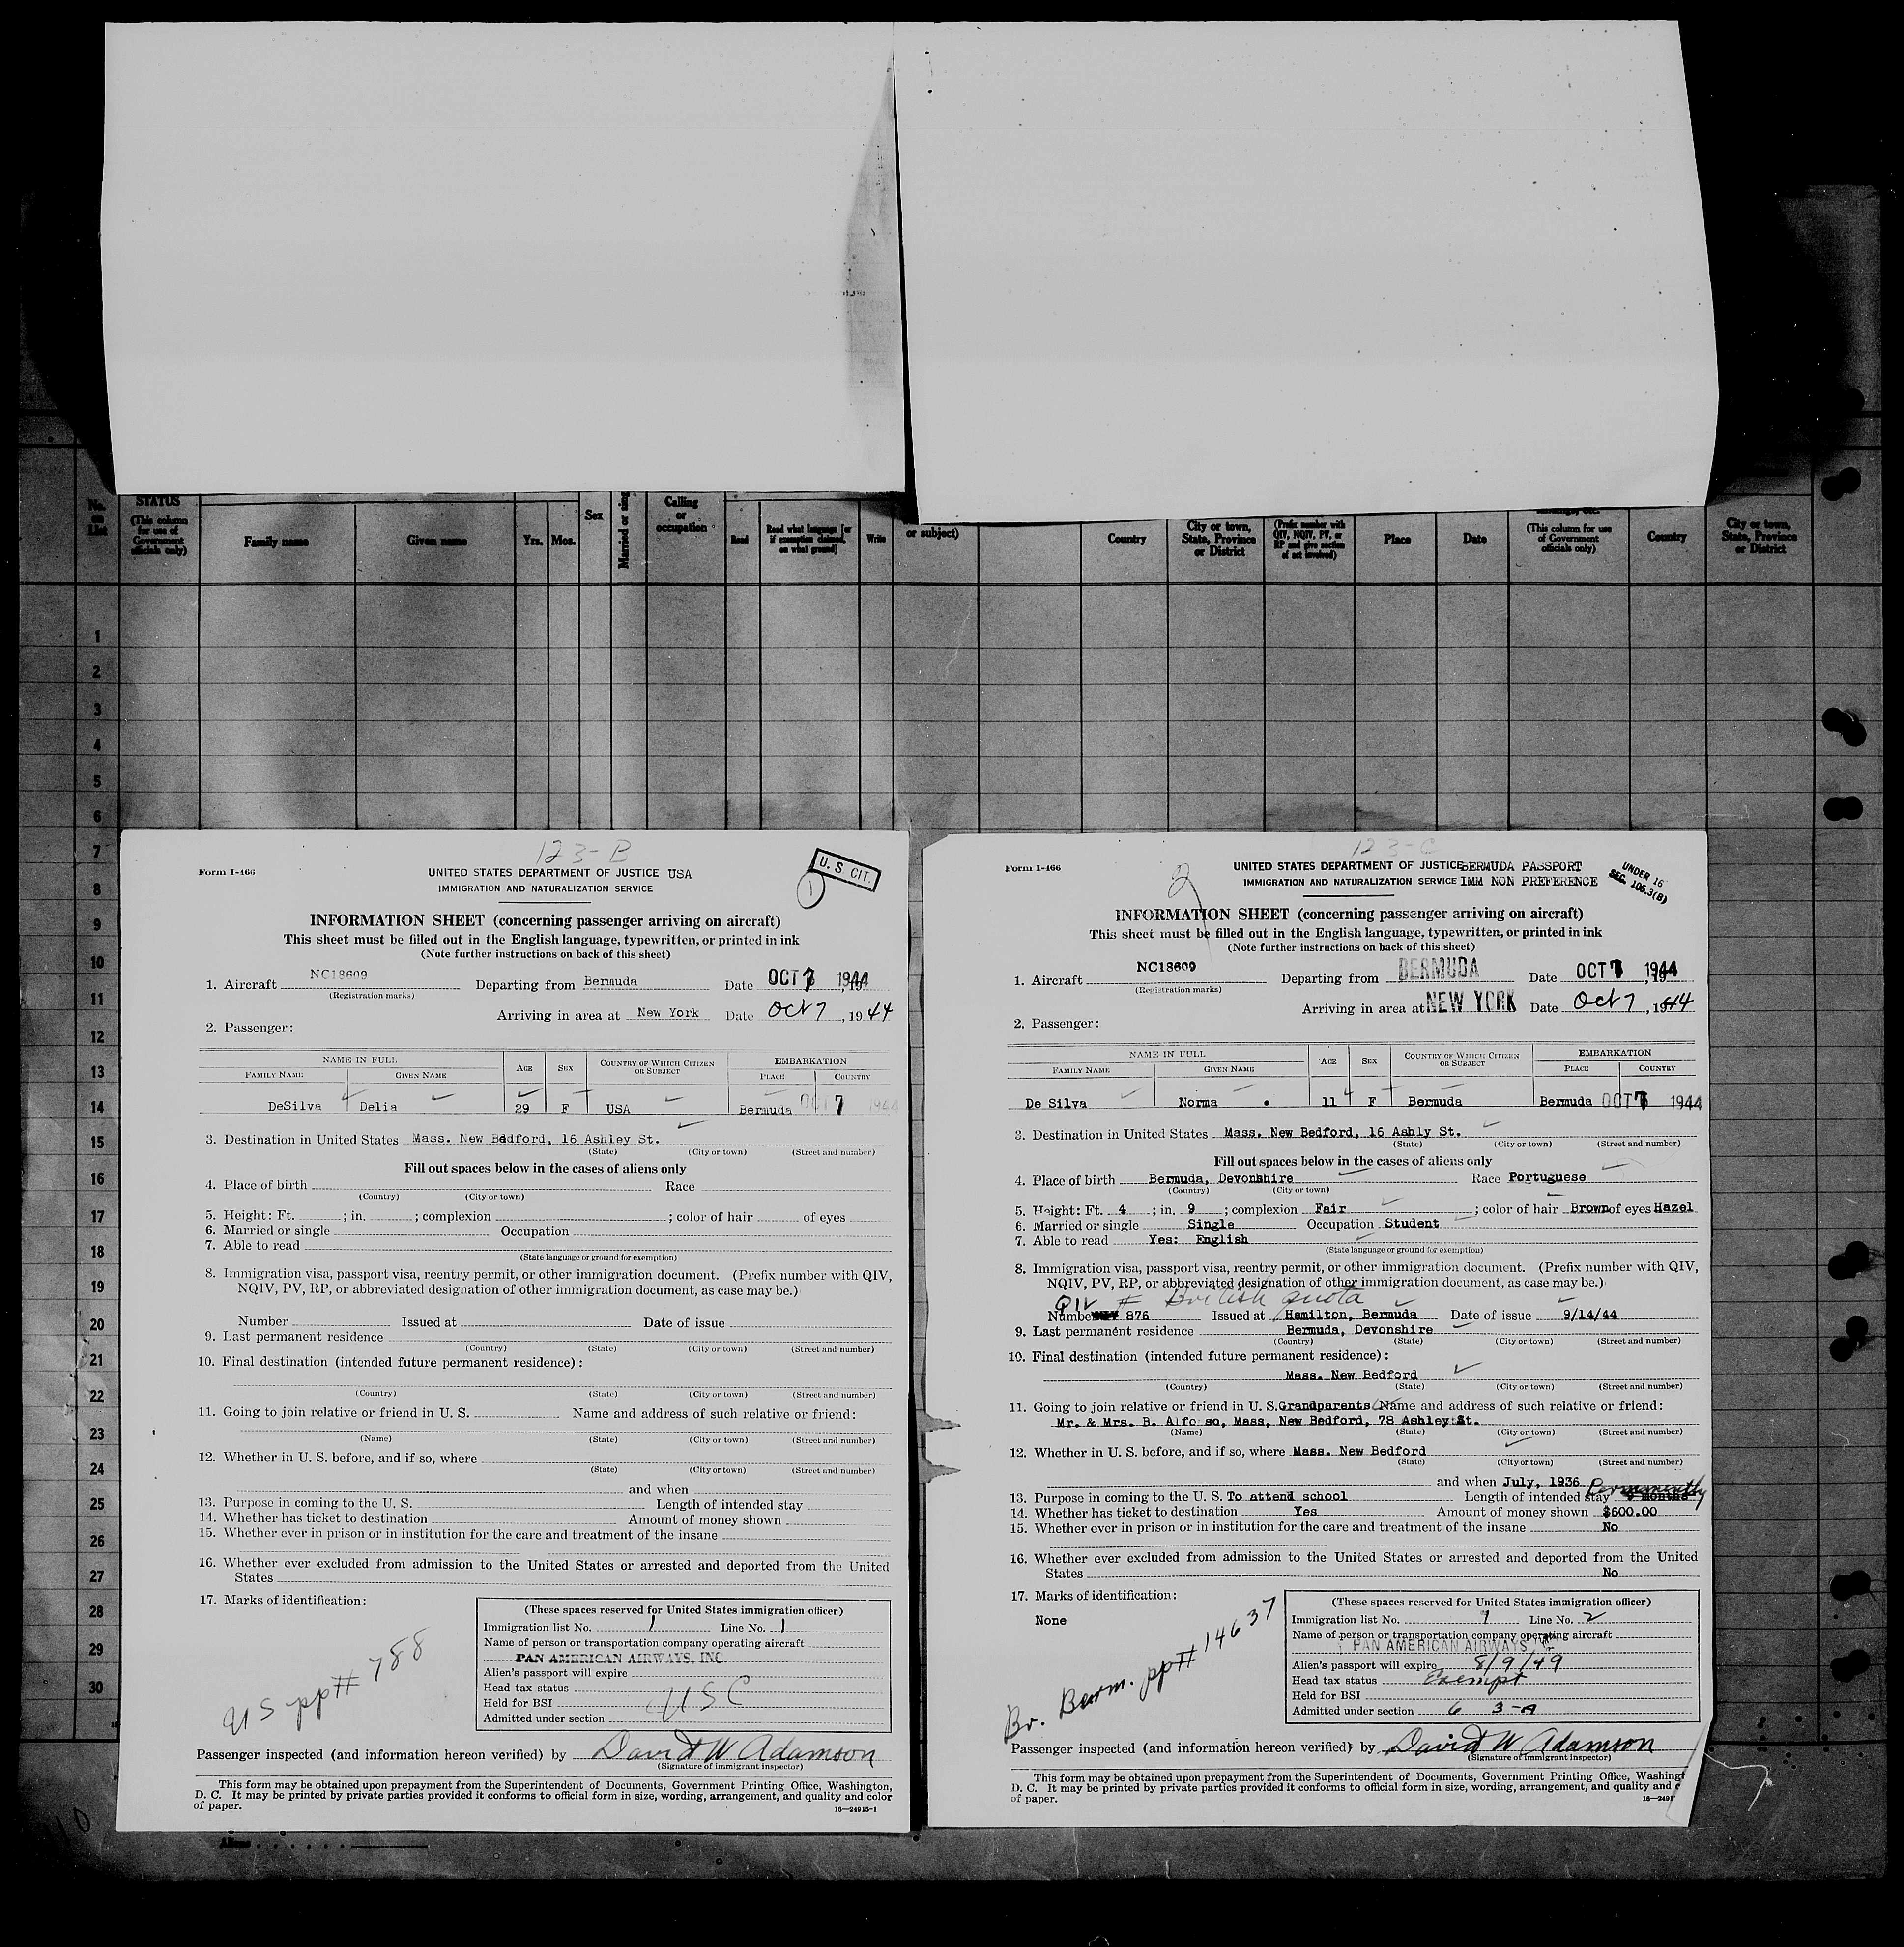 No.
on
List
STATUS
(This column
for use of
Government
officials only)
Family name
Given name
Yrs.
Mos.
Sex
Married or sing
Calling
or
occupation
Read
Read what language [or
if exemption claimed,
on what ground]
Write
or subject)
Country
City or town,
State, Province
or District
(Prefix number with
QIV, NQIV, PV, or
RP and give section
of act involved)
Place
Date
(This column for use
of Government
officials only)
Country
City or town,
State, Province
or District
1
2
3
4
5
6
7
8
9
10
11
12
13
14
15
16
17
18
19
20
21
22
23
24
25
26
27
28
29
30
123-B
Form I-466
UNITED STATES DEPARTMENT OF JUSTICE USA
U. S. CIT.
IMMIGRATION AND NATURALIZATION SERVICE
1
INFORMATION SHEET (concerning passenger arriving on aircraft)
This sheet must be filled out in the English language, typewritten, or printed in ink
(Note further instructions on back of this sheet)
1. Aircraft NC18609 Departing from Bermuda Date OCT 7 1944
(Registration marks)
Arriving in area at New York Date Oct 7, 1944
2. Passenger:
NAME IN FULL AGE SEX COUNTRY OF WHICH CITIZEN OR SUBJECT EMBARKATION
FAMILY NAME GIVEN NAME PLACE COUNTRY
DeSilva Delia 29 F USA Bermuda OCT 7 1944
3. Destination in United States Mass. New Bedford, 16 Ashley St.
(State) (City or town) (Street and number)
Fill out spaces below in the cases of aliens only
4. Place of birth Race
(Country) (City or town)
5. Height: Ft. ; in. ; complexion ; color of hair of eyes
6. Married or single Occupation
7. Able to read
(State language or ground for exemption)
8. Immigration visa, passport visa, reentry permit, or other immigration document. (Prefix number with QIV,
NQIV, PV, RP, or abbreviated designation of other immigration document, as case may be.)
Number Issued at Date of issue
9. Last permanent residence
(Country) (State) (City or town) (Street and number)
10. Final destination (intended future permanent residence):
(Country) (State) (City or town) (Street and number)
11. Going to join relative or friend in U. S. Name and address of such relative or friend:
(Name) (State) (City or town) (Street and number)
12. Whether in U. S. before, and if so, where
(State) (City or town) (Street and number)
and when
13. Purpose in coming to the U. S. Length of intended stay
14. Whether has ticket to destination Amount of money shown
15. Whether ever in prison or in institution for the care and treatment of the insane
16. Whether ever excluded from admission to the United States or arrested and deported from the United
States
17. Marks of identification:
US pp# 788
(These spaces reserved for United States immigration officer)
Immigration list No. 1 Line No. 1
Name of person or transportation company operating aircraft
PAN AMERICAN AIRWAYS, INC
Alien's passport will expire
Head tax status
Held for BSI USC
Admitted under section
Passenger inspected (and information hereon verified) by David W Adamson
(Signature of immigrant inspector)
This form may be obtained upon prepayment from the Superintendent of Documents, Government Printing Office, Washington,
D. C. It may be printed by private parties provided it conforms to official form in size, wording, arrangement, and quality and color
of paper.
16—24915-1
123-C
Form I-466
2
UNITED STATES DEPARTMENT OF JUSTICE BERMUDA PASSPORT
IMMIGRATION AND NATURALIZATION SERVICE IMM NON PREFERENCE
UNDER 16
SEC. 106.3(B)
INFORMATION SHEET (concerning passenger arriving on aircraft)
This sheet must be filled out in the English language, typewritten, or printed in ink
(Note further instructions on back of this sheet)
1. Aircraft NC18609 Departing from BERMUDA Date OCT 7 1944
(Registration marks)
Arriving in area at NEW YORK Date Oct 7, 1944
2. Passenger:
NAME IN FULL AGE SEX COUNTRY OF WHICH CITIZEN OR SUBJECT EMBARKATION
FAMILY NAME GIVEN NAME PLACE COUNTRY
De Silva Norma 11 F Bermuda Bermuda OCT 7 1944
3. Destination in United States Mass. New Bedford, 16 Ashly St.
(State) (City or town) (Street and number)
Fill out spaces below in the cases of aliens only
4. Place of birth Bermuda, Devonshire Race Portuguese
(Country) (City or town)
5. Height: Ft. 4 ; in. 9 ; complexion Fair ; color of hair Brown of eyes Hazel
6. Married or single Single Occupation Student
7. Able to read Yes: English
(State language or ground for exemption)
8. Immigration visa, passport visa, reentry permit, or other immigration document. (Prefix number with QIV,
NQIV, PV, RP, or abbreviated designation of other immigration document, as case may be.)
QIV # British quota
Number 876 Issued at Hamilton, Bermuda Date of issue 9/14/44
9. Last permanent residence Bermuda, Devonshire
(Country) (State) (City or town) (Street and number)
10. Final destination (intended future permanent residence):
Mass. New Bedford
(Country) (State) (City or town) (Street and number)
11. Going to join relative or friend in U. S. Grandparents Name and address of such relative or friend:
Mr. & Mrs. B. Alfo so, Mass, New Bedford, 78 Ashley St.
(Name) (State) (City or town) (Street and number)
12. Whether in U. S. before, and if so, where Mass. New Bedford
(State) (City or town) (Street and number)
and when July, 1936
13. Purpose in coming to the U. S. To attend school Length of intended stay Permanently months
14. Whether has ticket to destination Yes Amount of money shown $600.00
15. Whether ever in prison or in institution for the care and treatment of the insane No
16. Whether ever excluded from admission to the United States or arrested and deported from the United
States No
17. Marks of identification:
None
Br. Berm. pp# 14637
(These spaces reserved for United States immigration officer)
Immigration list No. 1 Line No. 2
Name of person or transportation company operating aircraft
PAN AMERICAN AIRWAYS
Alien's passport will expire 8/9/49
Head tax status Exempt
Held for BSI
Admitted under section 6 3-A
Passenger inspected (and information hereon verified) by David W Adamson
(Signature of immigrant inspector)
This form may be obtained upon prepayment from the Superintendent of Documents, Government Printing Office, Washingt
D. C. It may be printed by private parties provided it conforms to official form in size, wording, arrangement, and quality and c
of paper.
16—2491
10
Aliens